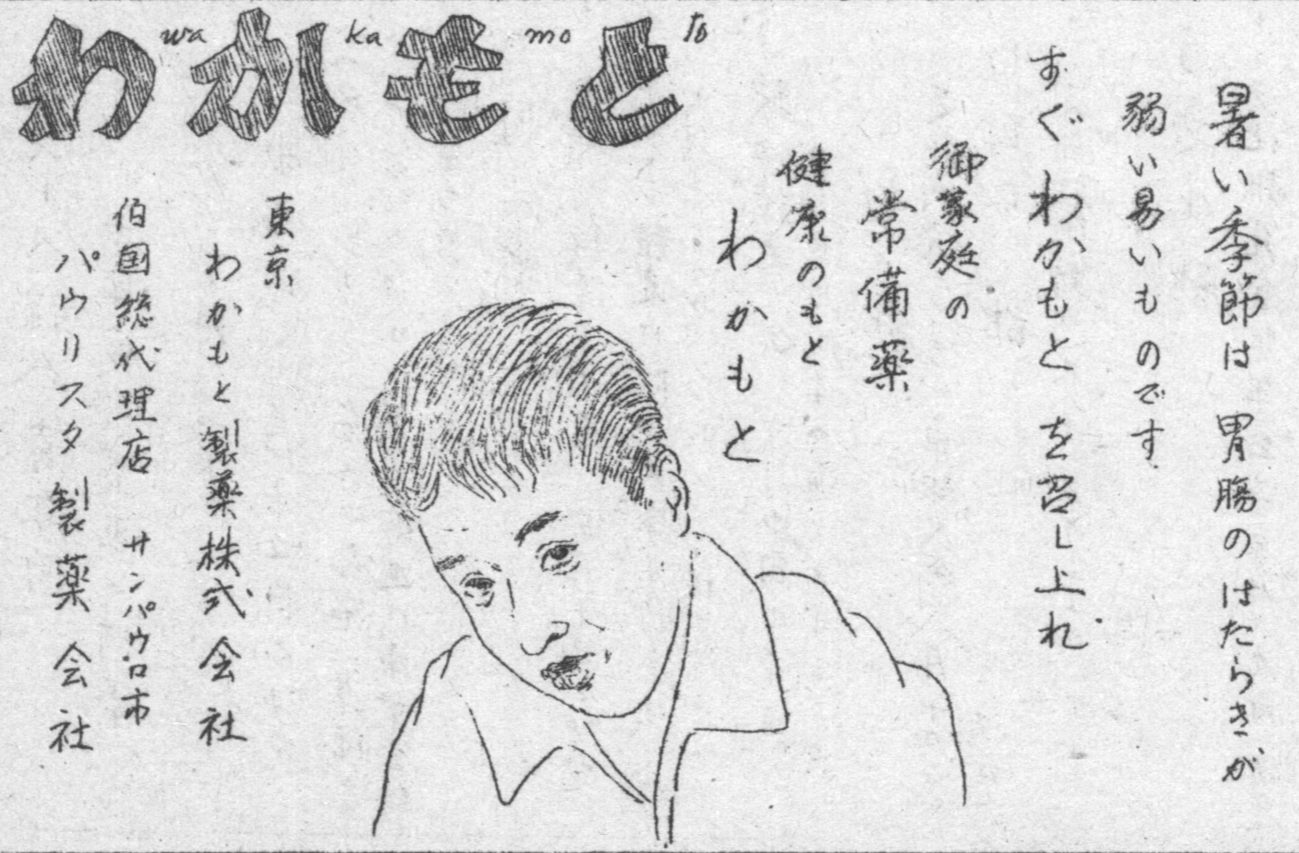 わかもと
wa ka mo to
暑い季節は 胃腸のはたらきが
弱い易いものです
すぐわかもと を召し上れ
御家庭の
常備薬
健康のもと
わかもと
東京
わかもと製薬株式会社
伯国総代理店 サンパウロ市
パウリスタ製薬会社